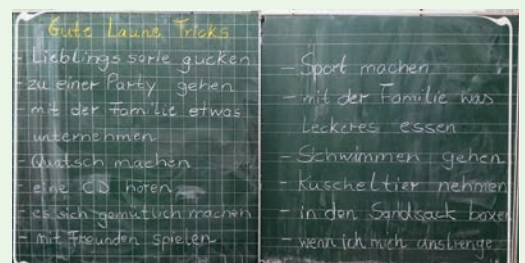 Gute Laune Tricks
- Lieblingsserie gucken
- zu einer Party gehen
- mit der Familie etwas
unternehmen
- Quatsch machen
- eine CD hören
- es sich gemütlich machen
- mit Freunden spielen
- Sport machen
- mit der Familie was
leckeres essen
- Schwimmen gehen
- Kuscheltier nehmen
- in den Sandsack boxen
- wenn ich mich anstrenge